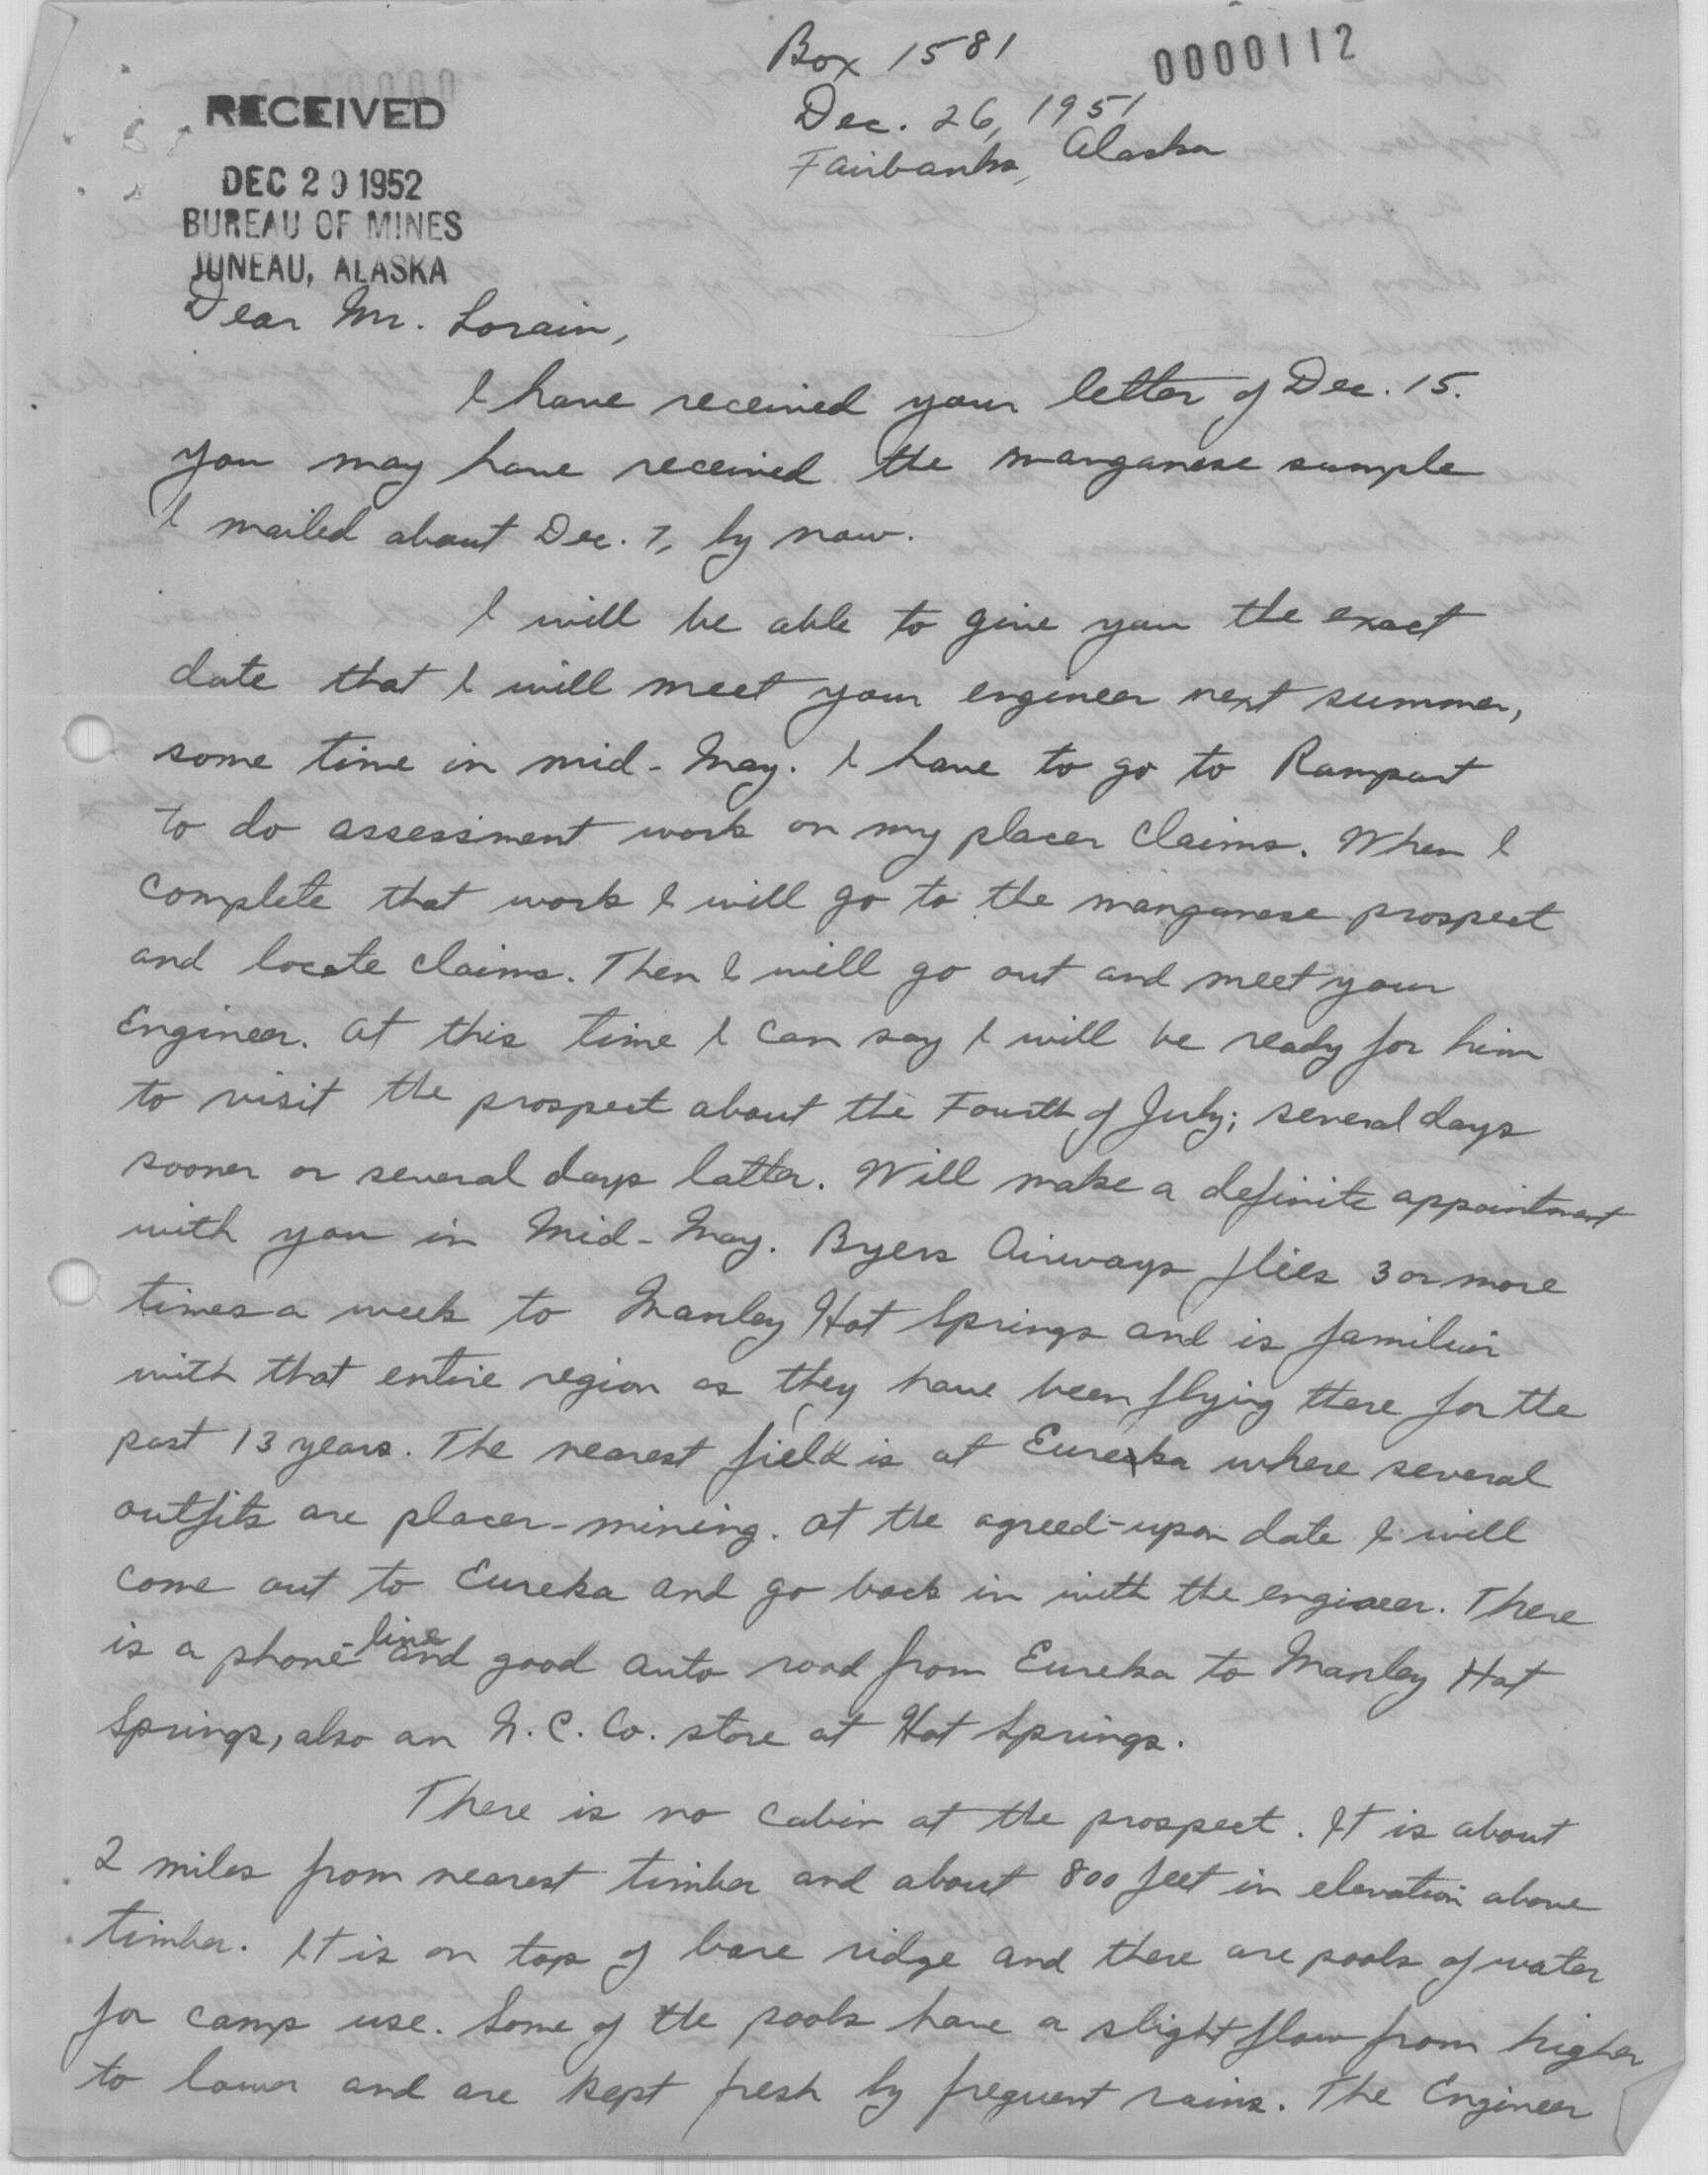 Box 1581
0000112
Dec. 26, 1951
Fairbanks, Alaska
RECEIVED
DEC 29 1952
BUREAU OF MINES
JUNEAU, ALASKA
Dear Mr. Lorain,
I have received your letter of Dec. 15.
you may have received the manganese sample
I mailed about Dec. 7, by now.
I will be able to give you the exact
date that I will meet your engineer next summer,
some time in mid-May. I have to go to Rampart
to do assessment work on my placer claims. When I
complete that work I will go to the manganese prospect
and locate claims. Then I will go out and meet your
Engineer. At this time I can say I will be ready for him
to visit the prospect about the Fourth of July; several days
sooner or several days latter. Will make a definite appointment
with you in Mid-May. Byers Airways flies 3 or more
times a week to Manley Hot Springs and is familiar
with that entire region as they have been flying there for the
past 13 years. The nearest field is at Eureka where several
outfits are placer-mining. At the agreed-upon date I will
come out to Eureka and go back in with the engineer. There
is a phone-line and good auto road from Eureka to Manley Hot
Springs, also an N. C. Co. store at Hot Springs.
There is no cabin at the prospect. It is about
2 miles from nearest timber and about 800 feet in elevation above
timber. It is on top of bare ridge and there are pools of water
for camp use. Some of the pools have a slight flow from higher
to lower and are kept fresh by frequent rains. The Engineer